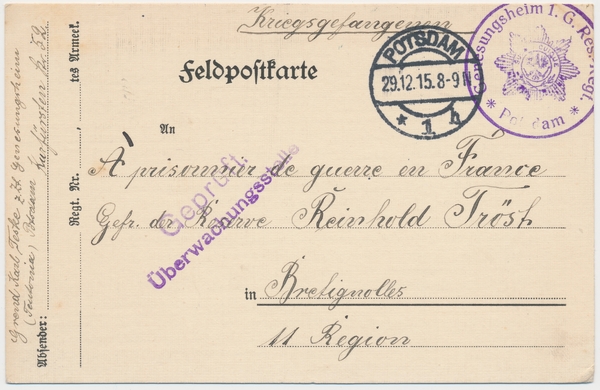 Kriegsgefangenen
Feldpostkarte
POTSDAM
29.12.15.8-9 N
* 1 h
Genesungsheim 1. G. Res. Regt.
* Potsdam *
An
A prisonnier de guerre en France
Gefr. der Reserve Reinhold Tröst
in Bretignolles
11 Region
Geprüft:
Überwachungsstelle
Regt. Nr.
tes Armeek.
Absender:
Karl
z. Zt. Genesungsheim
(Teutonia)
Kurfürsten Str. 52